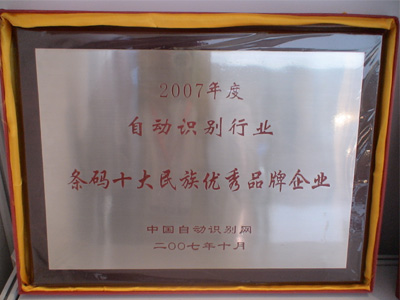 2007年度
自动识别行业
条码十大民族优秀品牌企业
中国自动识别网
二〇〇七年十月